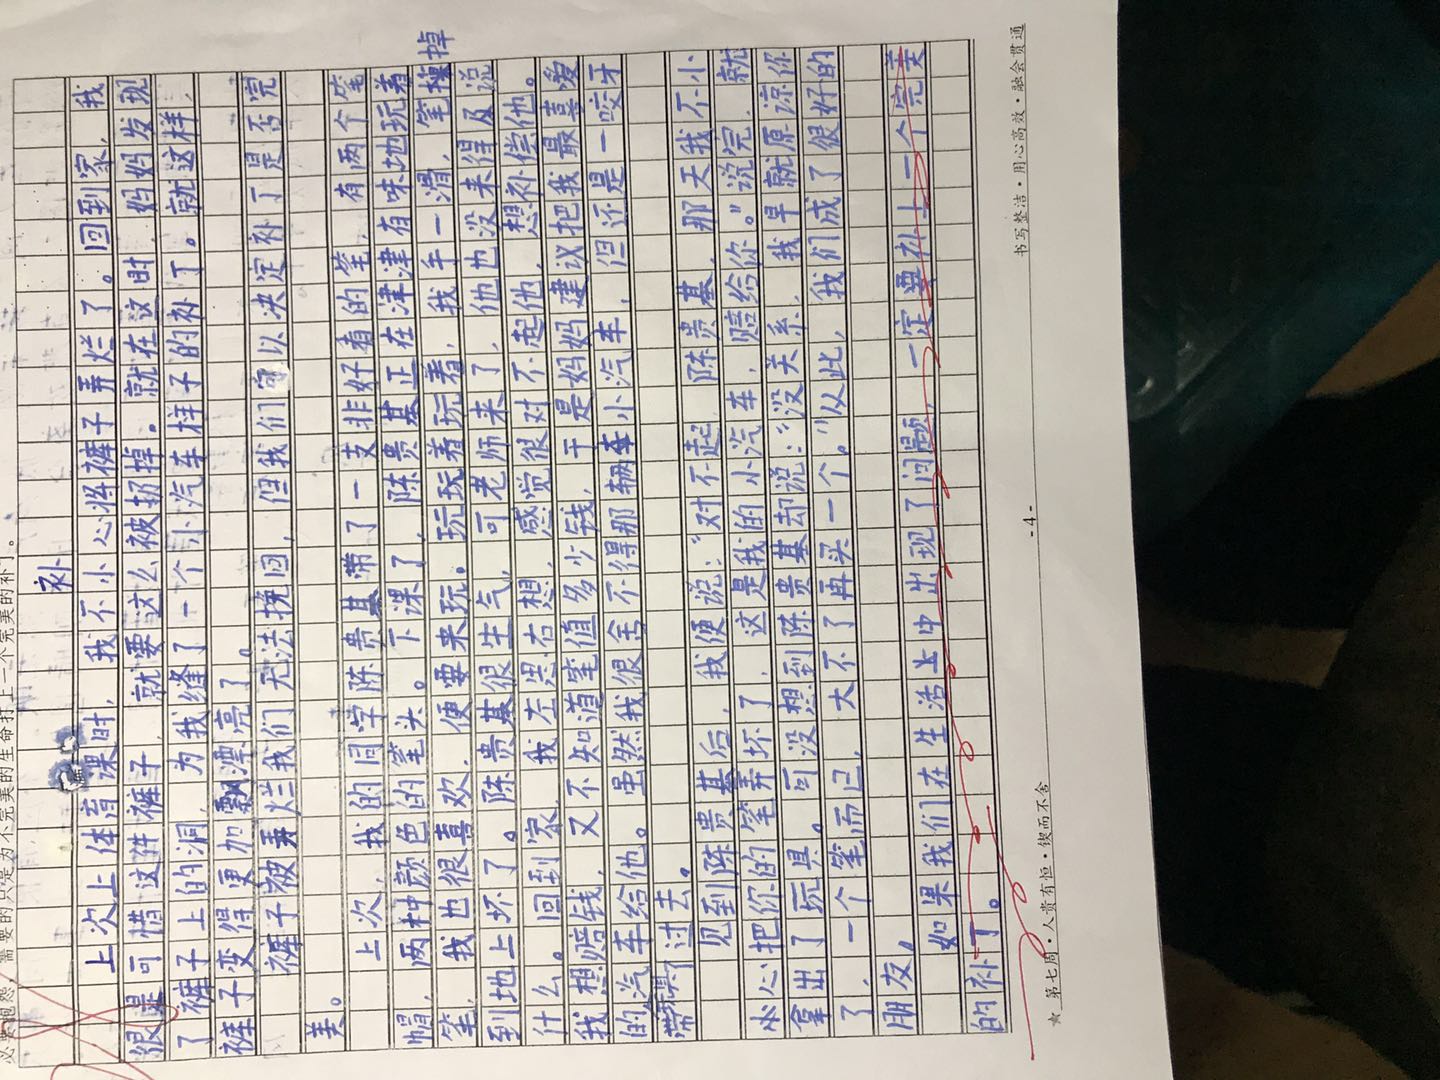 必要抱怨，需要的只是为不完美的生命打上一个完美的补丁。
补
上次上体育课时，我不小心将裤子弄烂了。回到家，我
很是可惜这件裤子，就要这么被扔掉。就在这时，妈妈发现
了裤子上的洞，为我缝了一个小汽车样子的补丁。就这样，
裤子变得更加飘漂亮了。
裤子被弄烂我们无法挽回，但我们可以决定补丁是否完
美。
上次，我的同学陈贵基带了一支非好看的笔，有两个笔
帽，两种颜色的笔头。下课了，陈贵基正在津津有味地玩着
笔，我也很喜欢，便要来玩。玩玩着玩着，我手一滑，笔掉
到地上坏了。陈贵基很生气，可老师来了，他也没来得及说
什么。回到家，我左思右想，感觉很对不起他，想补偿他。
我想赔钱，又不知道笔值多少钱，于是妈妈建议把我最喜爱
的汽车给他。虽然我很舍不得那辆小汽车，但还是一咬牙
带了过去。
见到陈贵基后，我便说：“对不起，陈贵基，那天我不小
心把你的笔弄坏了，这是我的小汽车，赔给你。”说完，就
拿出了玩具。可没想到陈贵基却说：“没关系，我早就原谅你
了，一个笔而已，大不了再买一个。”从此，我们成了很好的
朋友，
如果我们在生活上中出现了问题，一定要补上一个完美
的补丁。
★ 第七周·人贵有恒·锲而不舍
-4-
书写整洁·用心高效·融会贯通